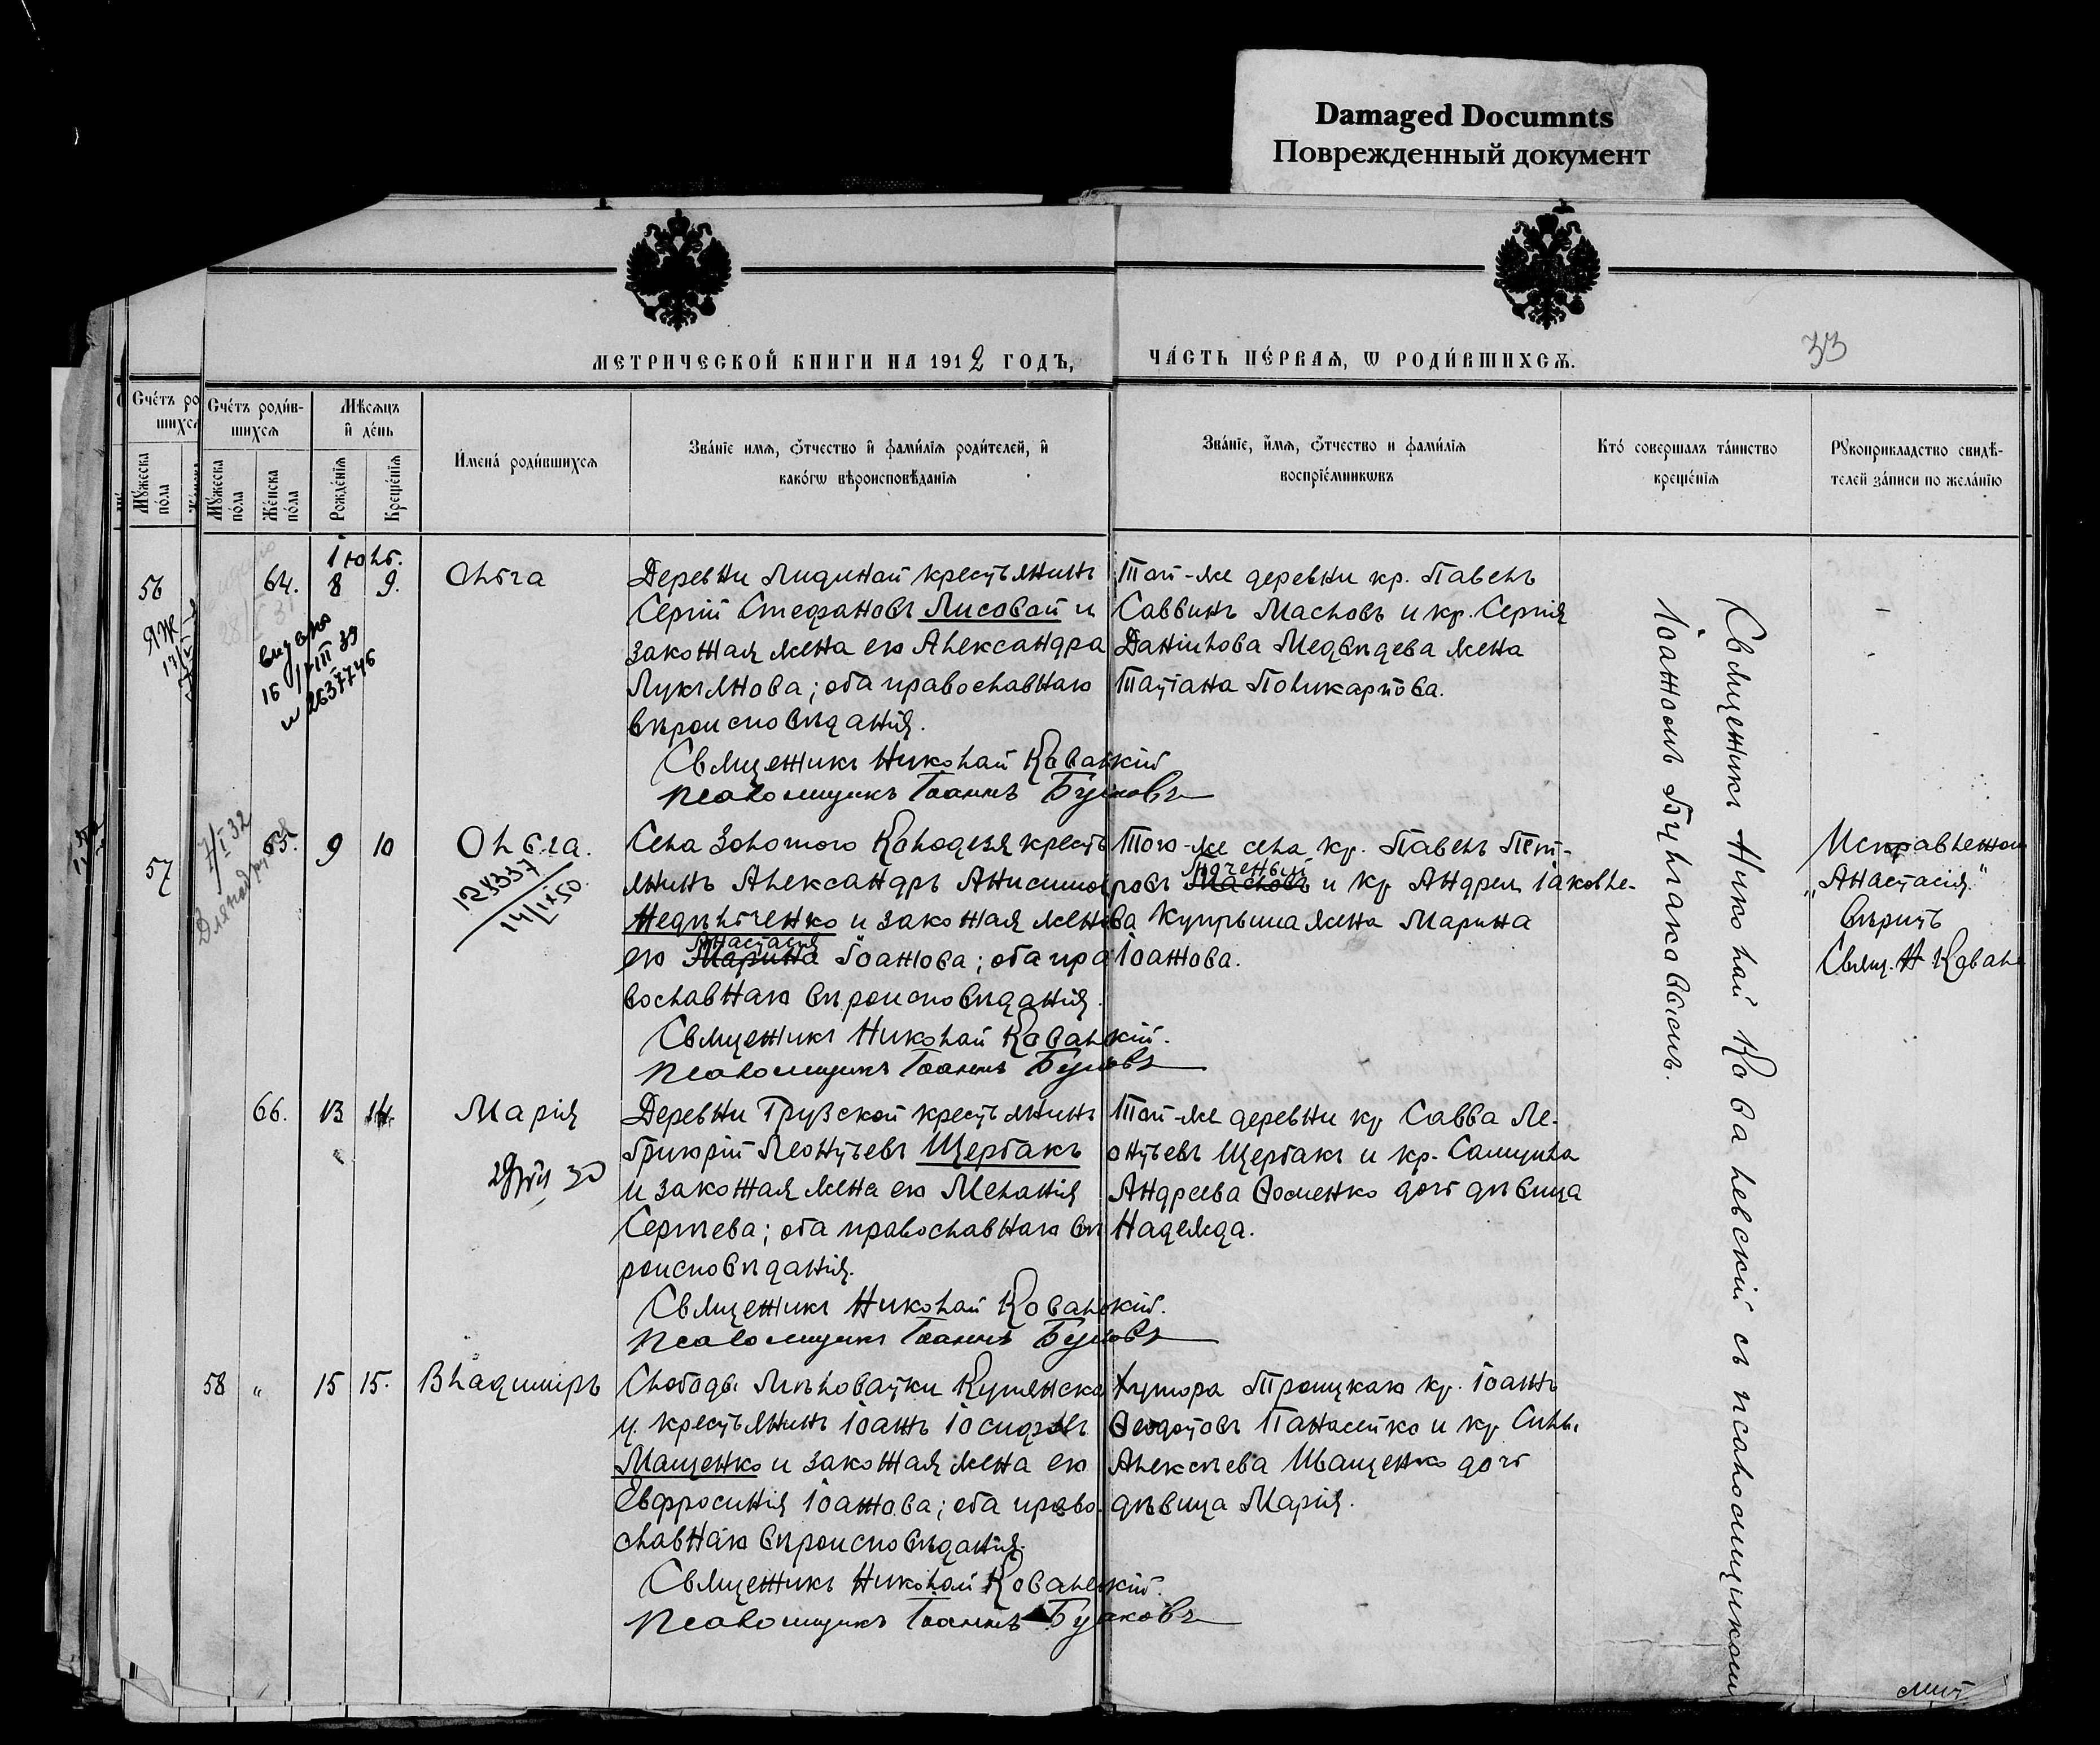 Damaged Documnts
Поврежденный документ
МЕТРИЧЕСКОЙ КНИГИ НА 1912 ГОДЪ,
ЧА́СТЬ ПЕ́РВАѦ, Ѡ РОДИ́ВШИХСѦ.
33
Сче́тъ роди́в-
шихсѧ
Мꙋ́жеска по́ла
Же́нска по́ла
Мѣ́сѧцъ
и҆ де́нь
Рожде́нїѧ
Креще́нїѧ
И҆мена́ роди́вшихсѧ
Зва́нїе имѧ, ѻ҆́тчество и҆ фами́лїѧ роди́телей, и҆
како́гѡ вѣроисповѣ́данїѧ
Зва́нїе, и҆́мѧ, ѻ҆́тчество и фами́лїѧ
воспрїе́мникѡвъ
Кто́ соверша́лъ та́инство
креще́нїѧ
Рꙋкоприкладство свидѣ́-
телей за́писи по жела́нїю
56
57
Іюль.
64. 8 9.
Ольга
Деревни Лидиной крестьянинъ
Сергій Стефановъ Лисовой и
законная жена его Александра
Лукьянова; оба православнаго
вѣроисповѣданія.
Священникъ Николай Ковалевскій
Псаломщикъ Іоаннъ Булаковъ
Той-же деревни кр. Павелъ
Саввинъ Масловъ и кр. Сергія
Даніилова Медвѣдева жена
Татіана Поликарпова.
65. 9 10
Ольга.
124337
14/IX 50.
7/I 32
Села Золотого Колодезя кресть
янинъ Александръ Анисимовъ
Недѣльченко и законная жена
его Марина Анастасія Іоаннова; оба пра
вославнаго вѣроисповѣданія.
Священникъ Николай Ковалевскій.
Псаломщикъ Іоаннъ Булаковъ
Того-же села кр. Павелъ Пет-
ровъ Масловъ и кр. Андрея Іаковле-
ва Купрѣина жена Марина
Іоаннова.
Исправленному
"Анастасія"
вѣрить
Свящ. Н Ковале
66. 13 14.
Марія
Деревни Грузской крестьянинъ
Григорій Леонтьевъ Щербакъ
и законная жена его Меланія
Сергѣева; оба православнаго вѣ
роисповѣданія.
Священникъ Николай Ковалевскій.
Псаломщикъ Іоаннъ Булаковъ
Той-же деревни кр. Савва Ле-
онтьевъ Щербакъ и кр. Самуила
Андреева Ѳоменко дочь дѣвица
Надежда.
58 " 15 15.
Владиміръ
Слободы Лѣковатки Купянска
у. крестьянинъ Іоаннъ Іосифовъ
Мащенко и законная жена его
Евфросинія Іоаннова; оба право-
славнаго вѣроисповѣданія.
Священникъ Николай Ковалевскій.
Псаломщикъ Іоаннъ Булаковъ
Хутора Троицкаго кр. Іоаннъ
Ѳеодотовъ Панасейко и кр Силы
Алексѣева Иващенко дочь
дѣвица Марія.
Священникъ Николай Ковалевскій съ псаломщикомъ
Іоанномъ Булаковымъ.